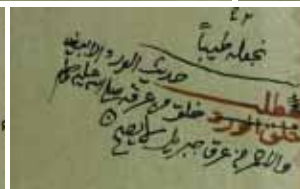 ٤٢
نجعله طيباً
حديث الورد الابيض
خلق من عرقه صلى الله عليه
مطلب
خلق الورد
والاحمر من عرق جبريل